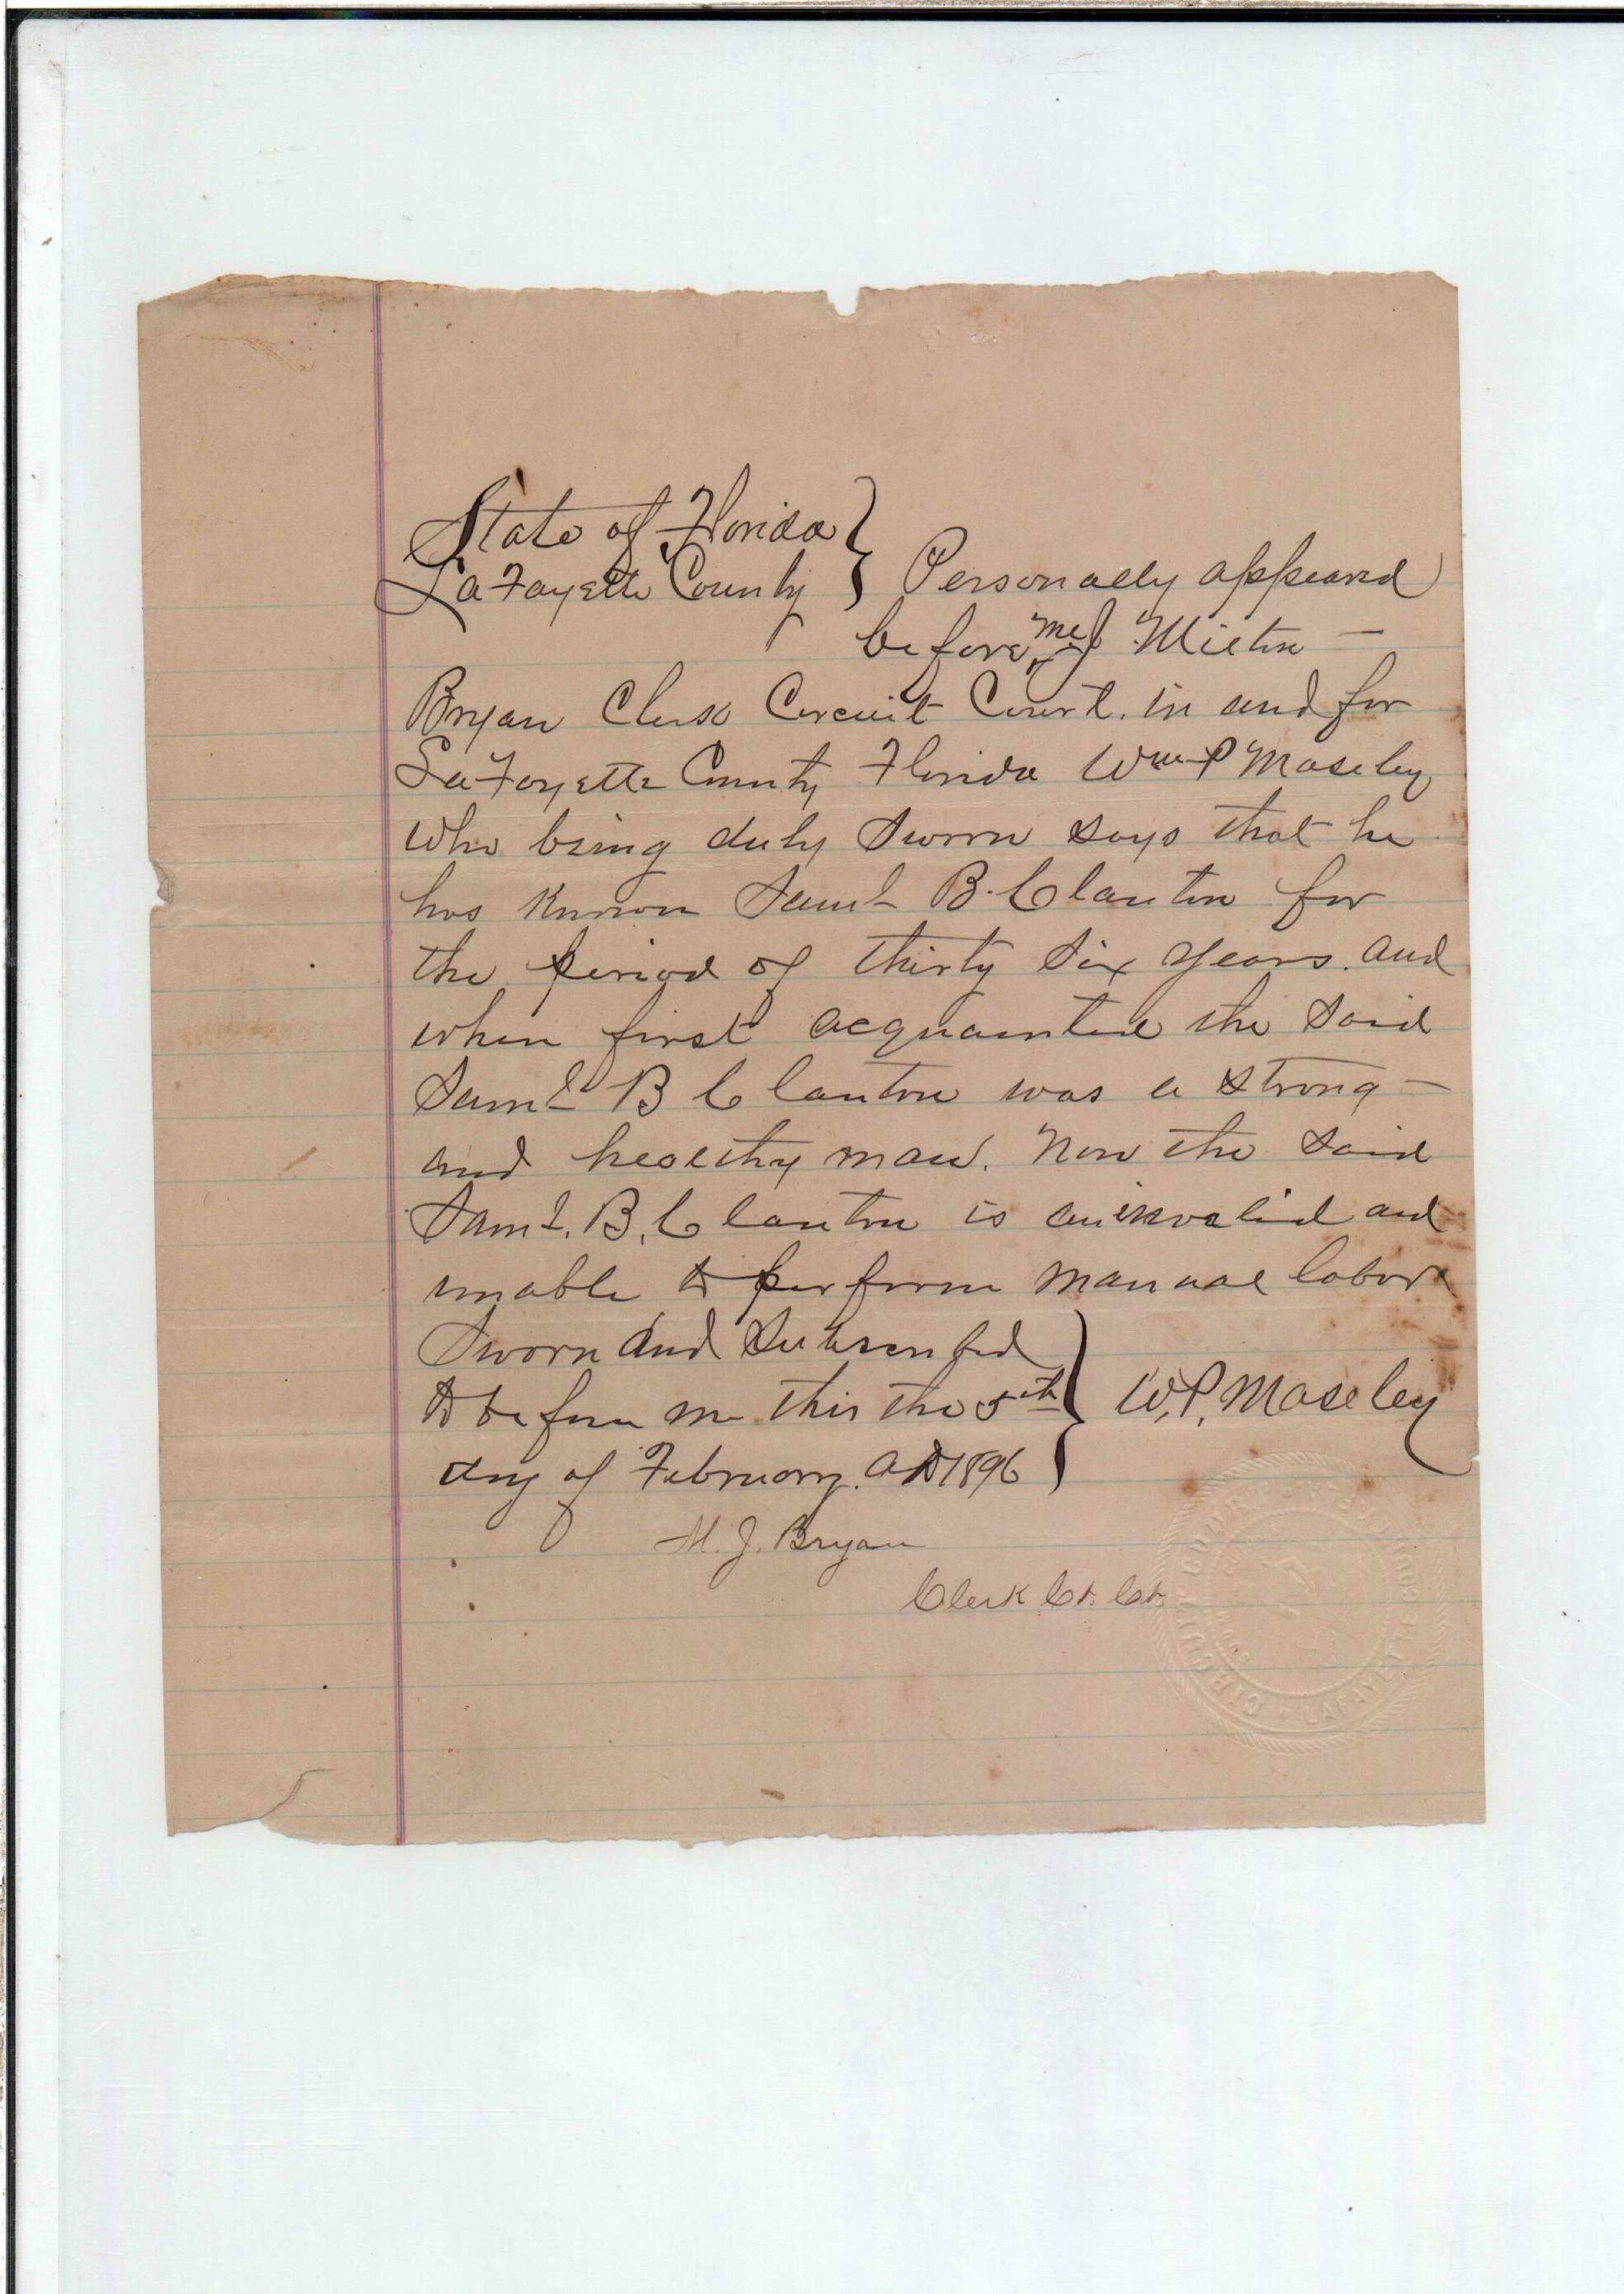 State of Florida }
LaFayette County } Personally appeared
before me J Milton —
Bryan Clerk Circuit Court. in and for
LaFayette County Florida Wm P Moseley
who being duly sworn says that he
has known Saml B. Clanton for
the period of thirty six years. and
when first acquainted the said
Saml B Clanton was a strong —
and healthy man. Now the said
Saml. B. Clanton is an invalid and
unable to perform manual labor
Sworn and Subscribed
to before me this the 5th } W. P. Moseley
day of February. AD 1896
M. J. Bryan
Clerk Ct. Ct.
CIRCUIT COURT LAFAYETTE COUNTY